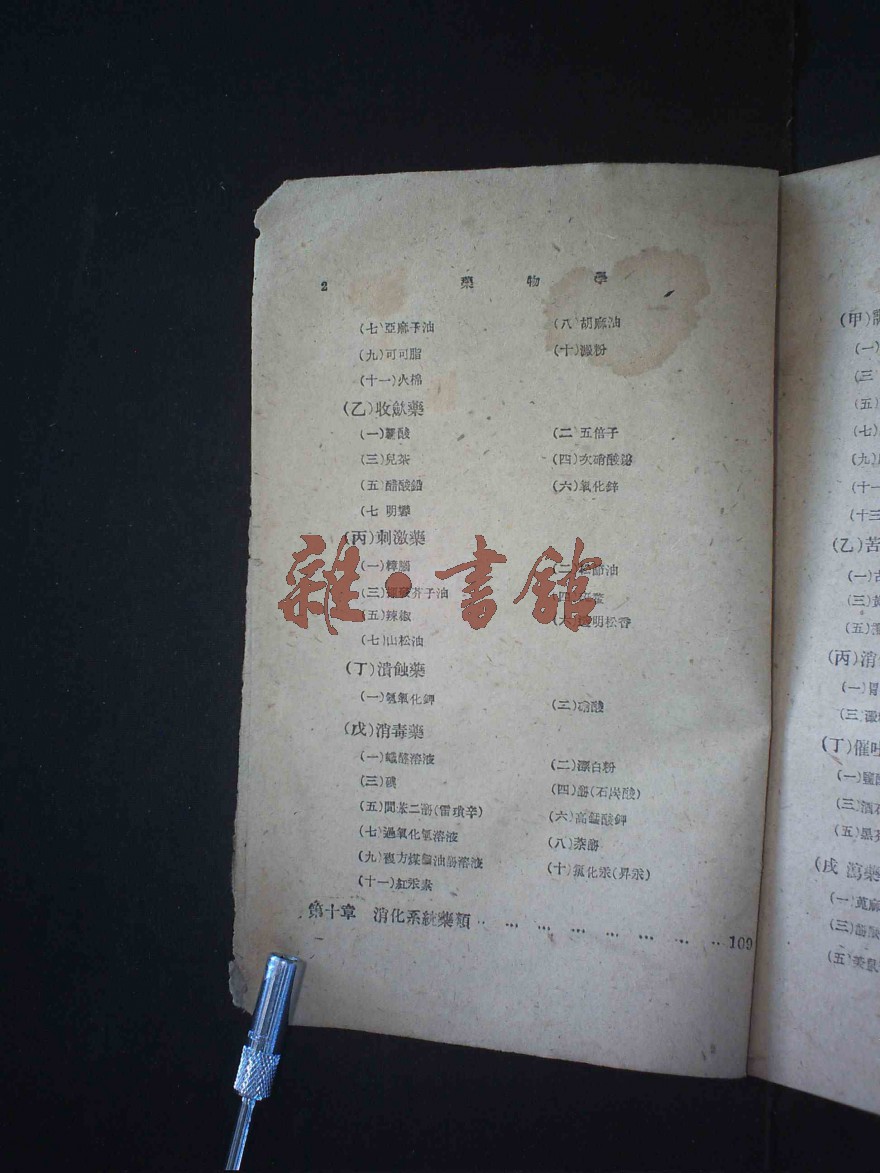 2 藥物學
(七)亞麻子油 (八)胡麻油
(九)可可脂 (十)澱粉
(十一)火棉
(乙)收歛藥
(一)鞣酸 (二 五倍子
(三)兒茶 (四)次硝酸鉍
(五)醋酸鉛 (六)氧化鋅
(七 明礬
(丙)刺激藥
(一)樟腦 (二)節油
(三)芥子油 (四)
(五)辣椒 (六)明松香
(七)山松油
(丁)潰蝕藥
(一)氫氧化鉀 (二)硝酸
(戊)消毒藥
(一)蟻醛溶液 (二)漂白粉
(三)碘 (四)酚(石炭酸)
(五)間苯二酚(雷瑣辛) (六)高錳酸鉀
(七)過氧化氫溶液 (八)萘酚
(九)複方煤餾油酚溶液 (十)氯化汞(昇汞)
(十一)紅汞素
第十章 消化系統藥類 … … … … … … 109
雜·書館
(甲)
(一)
(三
(五)
(七)
(九)
(十一
(十三
(乙)苦
(一)
(三)
(五)
(丙)消
(一)胃
(三 澱
(丁)催吐
(一)
(三)酒石
(五)
(戊
(一)蓖麻
(三)酚
(五)